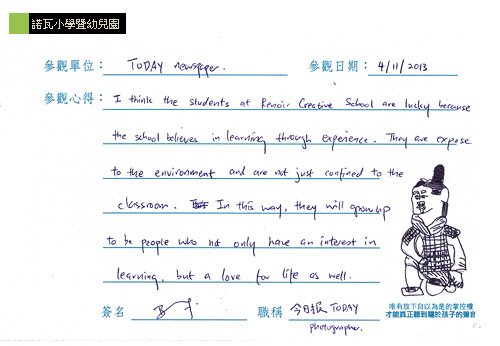 諾瓦小學暨幼兒園
參觀單位： TODAY newspaper. 參觀日期： 4/11/2013
參觀心得： I think the students at Renoir Creative School are lucky because
the school believes in learning through experience. They are expose
to the environment and are not just confined to the
classroom. In this way, they will grow up
to be people who not only have an interest in
learning, but a love for life as well.
唯有放下自以為是的掌控權
才能真正聽到關於孩子的聲音
簽名 職稱 今日报 TODAY
photographer.